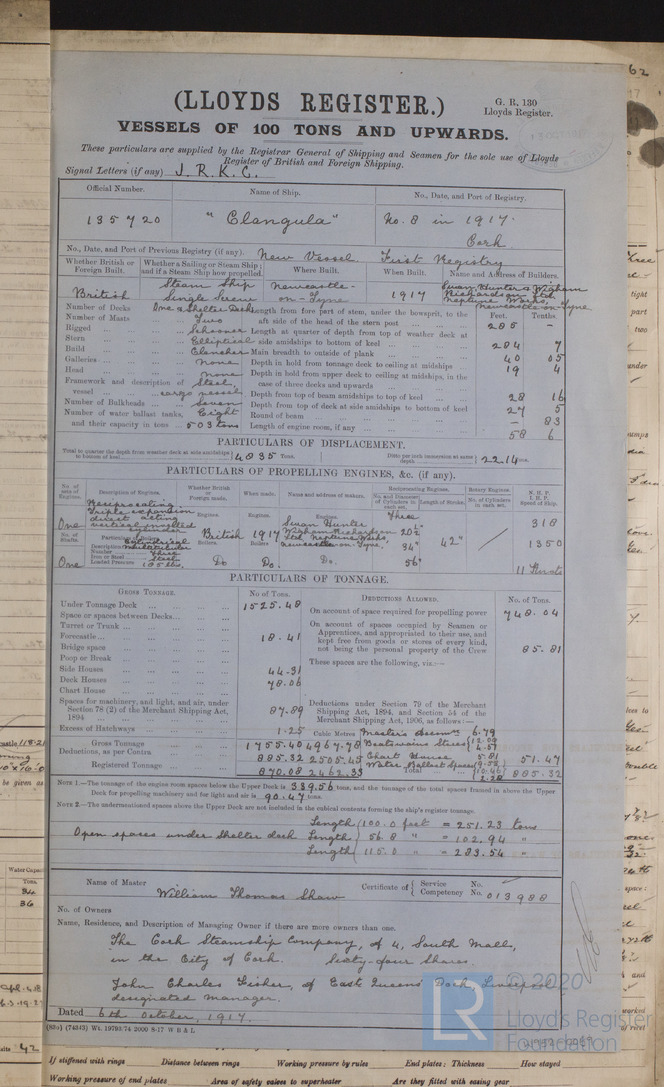 (LLOYDS REGISTER.)
G. R. 130
Lloyds Register.
VESSELS OF 100 TONS AND UPWARDS.
These particulars are supplied by the Registrar General of Shipping and Seamen for the sole use of Lloyds
Register of British and Foreign Shipping.
Signal Letters (if any) J. R. K. C.
Official Number. Name of Ship. No., Date, and Port of Registry.
135720 "Clangula" No. 8 in 1917.
Cork
No., Date, and Port of Previous Registry (if any). New Vessel First Registry
Whether British or Foreign Built. Whether a Sailing or Steam Ship; and if a Steam Ship how propelled. Where Built. When Built. Name and Address of Builders.
British Steam Ship Single Screw Newcastle-on-Tyne 1917 Swan Hunter & Wigham Richardson Ltd. Neptune Works, Newcastle-on-Tyne
Feet. Tenths
Number of Decks One & Shelter Deck Length from fore part of stem, under the bowsprit, to the
Number of Masts Two aft side of the head of the stern post 285 -
Rigged Schooner Length at quarter of depth from top of weather deck at
Stern Elliptical side amidships to bottom of keel 284 7
Build Clencher Main breadth to outside of plank 40 05
Galleries none Depth in hold from tonnage deck to ceiling at midships 19 4
Head none Depth in hold from upper deck to ceiling at midships, in the
Framework and description of Steel, case of three decks and upwards
vessel cargo vessel Depth from top of beam amidships to top of keel 28 16
Number of Bulkheads Seven Depth from top of deck at side amidships to bottom of keel 27 5
Number of water ballast tanks, Eight Round of beam - 83
and their capacity in tons 503 tons Length of engine room, if any 58 6
PARTICULARS OF DISPLACEMENT.
Total to quarter the depth from weather deck at side amidships to bottom of keel 4835 Tons. Ditto per inch immersion at same depth 22.14 tons.
PARTICULARS OF PROPELLING ENGINES, &c. (if any).
No. of sets of Engines. Description of Engines. Whether British or Foreign made. When made. Name and address of makers. Reciprocating Engines. Rotary Engines. N. H. P. I. H. P. Speed of Ship.
No. and Diameter of Cylinders in each set. Length of Stroke. No. of Cylinders in each set.
One Reciprocating Triple expansion direct acting vertical inverted cylinder British 1917 Swan Hunter Wigham Richardson Ltd. Neptune Works, Newcastle-on-Tyne Three 34" 56" 42" 318
1350
11 Knots
No. of Shafts. Particulars of Boilers. Boilers.
Description Cylindrical Multitubular
Number Three
Iron or Steel Steel
One Loaded Pressure Do Do. Do.
PARTICULARS OF TONNAGE.
GROSS TONNAGE. No. of Tons. DEDUCTIONS ALLOWED. No. of Tons.
Under Tonnage Deck 1525.48 On account of space required for propelling power 748.04
Space or spaces between Decks On account of spaces occupied by Seamen or
Turret or Trunk Apprentices, and appropriated to their use, and
Forecastle 18.41 kept free from goods or stores of every kind,
Bridge space not being the personal property of the Crew 85.81
Poop or Break These spaces are the following, viz.:—
Side Houses 44.31
Deck Houses 78.06
Chart House
Spaces for machinery, and light, and air, under Deductions under Section 79 of the Merchant
Section 78 (2) of the Merchant Shipping Act, Shipping Act, 1894, and Section 54 of the
1894 87.89 Merchant Shipping Act, 1906, as follows:—
Excess of Hatchways 1.25 Cubic Metres Master's Accomn. 6.79
Gross Tonnage 1755.40 4967.78 Boatswains Stores 12.09 4.57
Deductions, as per Contra 885.32 2505.45 Chart House 5.81 51.47
Registered Tonnage 870.08 2462.33 Water Ballast Spaces Total 885.32
NOTE 1.—The tonnage of the engine room spaces below the Upper Deck is 339.56 tons, and the tonnage of the total spaces framed in above the Upper
Deck for propelling machinery and for light and air is 90.47 tons.
NOTE 2.—The undermentioned spaces above the Upper Deck are not included in the cubical contents forming the ship's register tonnage.
Length (100.0 feet = 251.23 tons
Open spaces under Shelter deck Length 56.8 " = 102.94 "
Length 115.0 " = 283.54 "
Name of Master William Thomas Shaw Certificate of { Service No.
Competency No. 013988
No. of Owners
Name, Residence, and Description of Managing Owner if there are more owners than one.
The Cork Steamship Company, of 4, South Mall,
in the City of Cork. Sixty-four Shares.
John Charles Fisher, of East Queens Dock, Liverpool
designated manager.
Dated 6th October, 1917.
(83o) (74343) Wt. 19793/74 2000 8-17 W B & L
© 2020
Lloyd's Register
Foundation
LR
If stiffened with rings Distance between rings Working pressure by rules End plates; Thickness How stayed
Working pressure of end plates Area of safety valves to superheater Are they fitted with easing gear